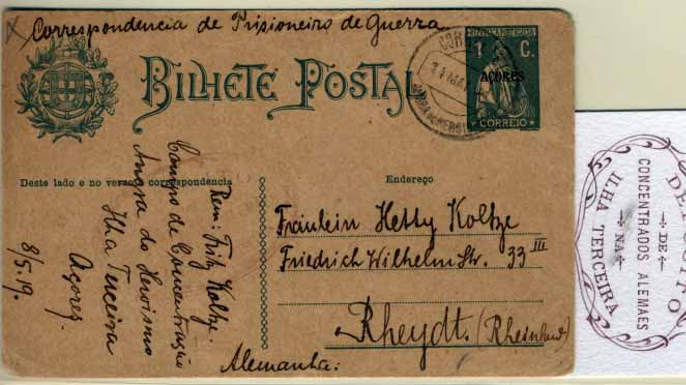 Correspondencia de Prisioneiro de Guerra
BILHETE POSTAL
1 C.
AÇORES
CORREIO
11 MAI
Deste lado e no verso correspondencia
Endereço
Rem: Fritz Koltze.
Campo de Concentração
Angra do Heroismo
Ilha Terceira
Açores.
8/5.19.
Fräulein Hetty Koltze
Friedrich Wilhelm Str. 33 III
Rheydt. (Rheinland)
Alemanha:
DEPOSITO
DE
CONCENTRADOS ALEMAES
NA
ILHA TERCEIRA